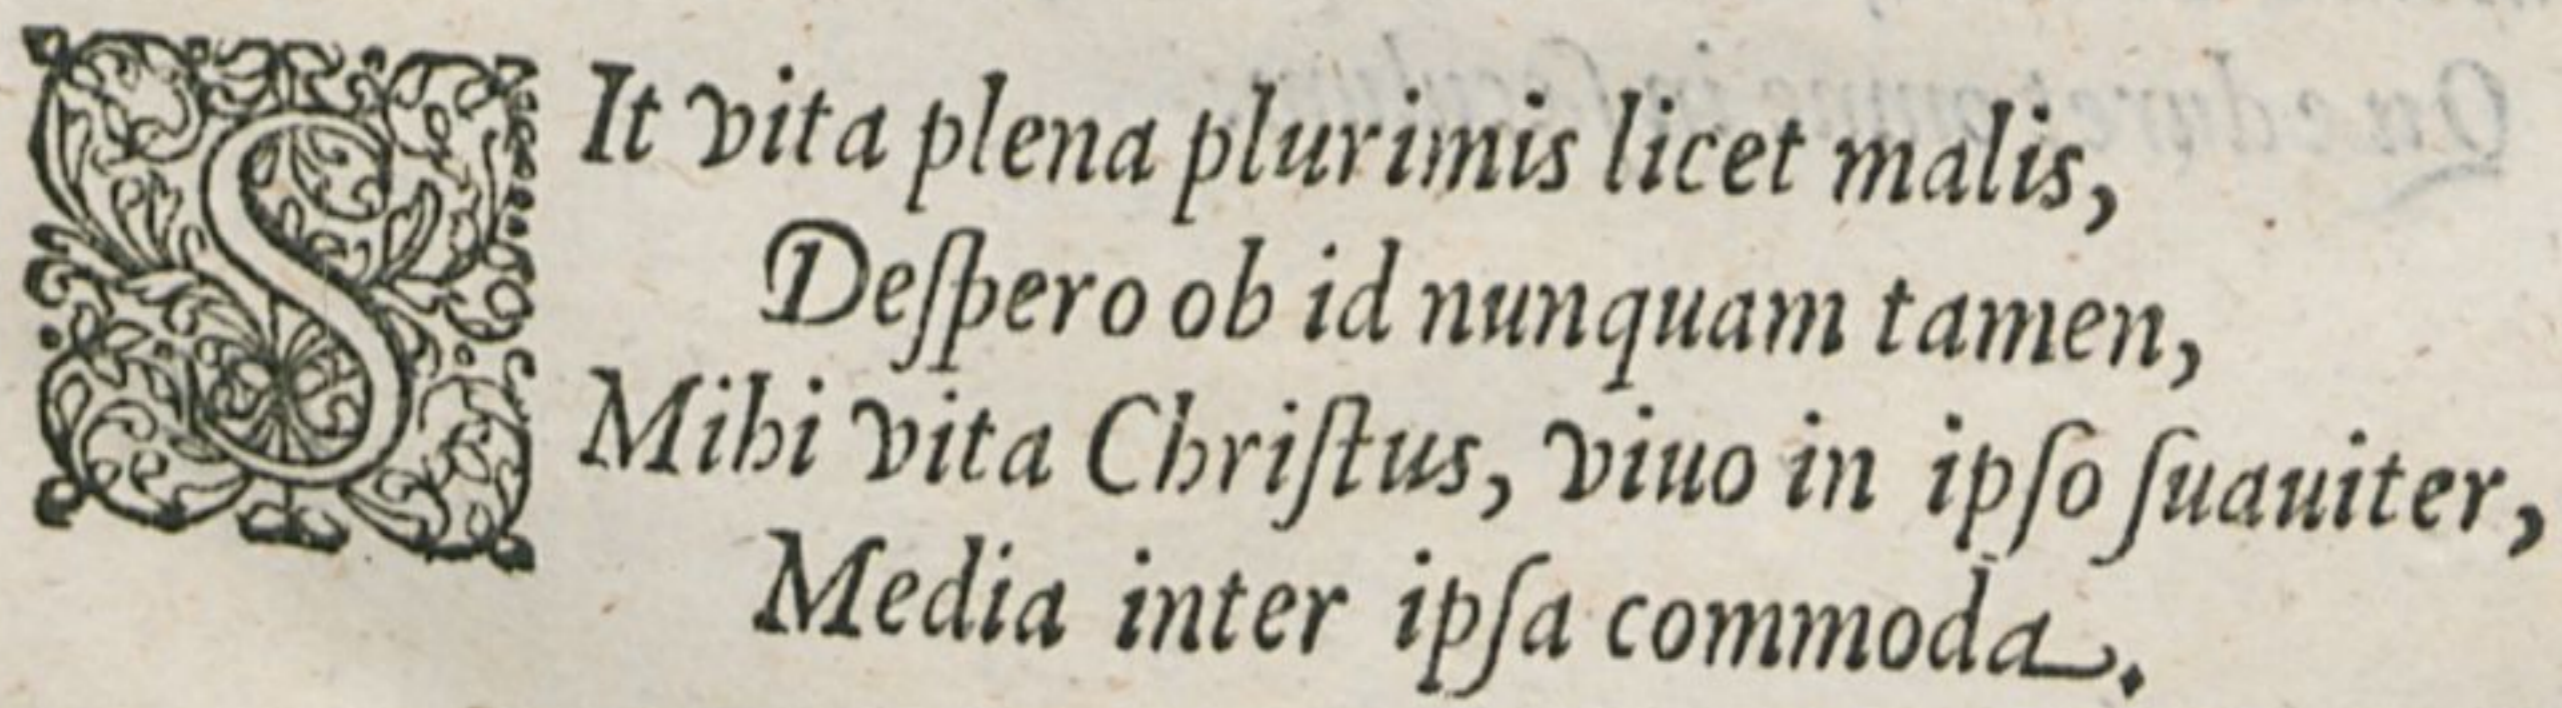 SIt vita plena plurimis licet malis,
Deſpero ob id nunquam tamen,
Mihi vita Chriſtus, viuo in ipſo ſuauiter,
Media inter ipſa commoda.